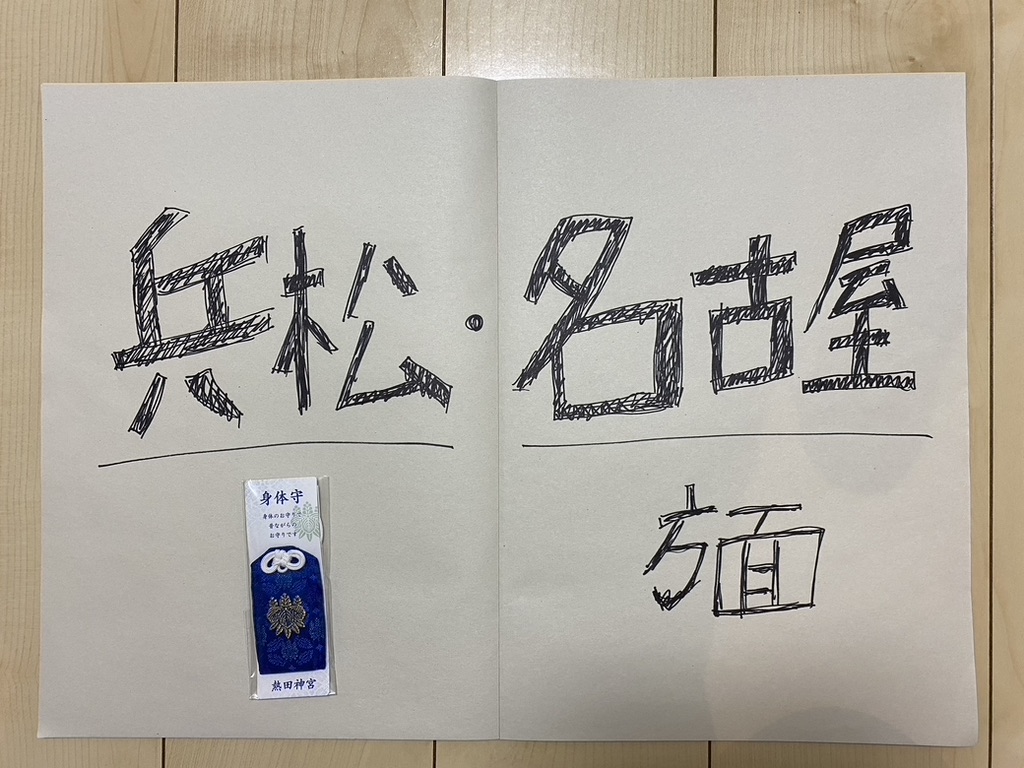 兵松・名古屋
方面
身体守
身体のお守りで
昔ながらの
お守りです
熱田神宮